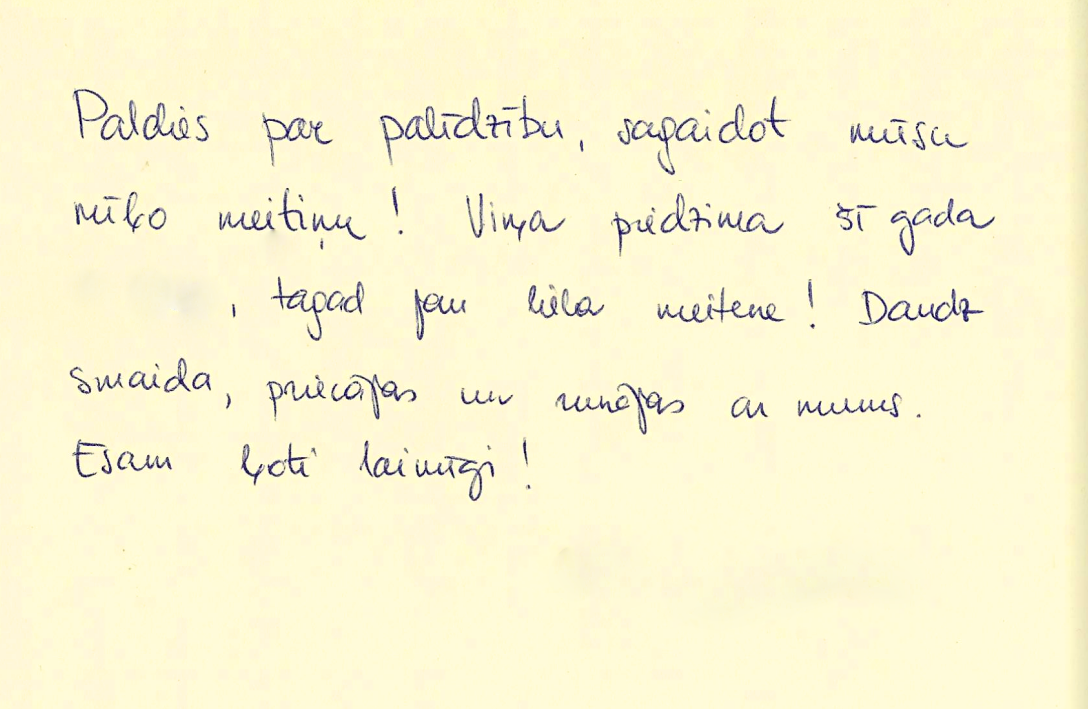 Paldies par palīdzību, sagaidot mūsu
mīļo meitiņu! Viņa piedzima šī gada
, tagad jau liela meitene! Daudz
smaida, priecājas un runājas ar mums.
Esam ļoti laimīgi!